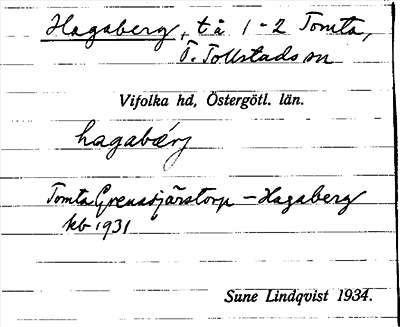 Hagaberg, tå 1-2 Tomta,
V. Tollstads sn
Vifolka hd, Östergötl. län.
hagabærj
Tomta Grensjärstorp - Hagaberg
kb 1931
Sune Lindqvist 1934.